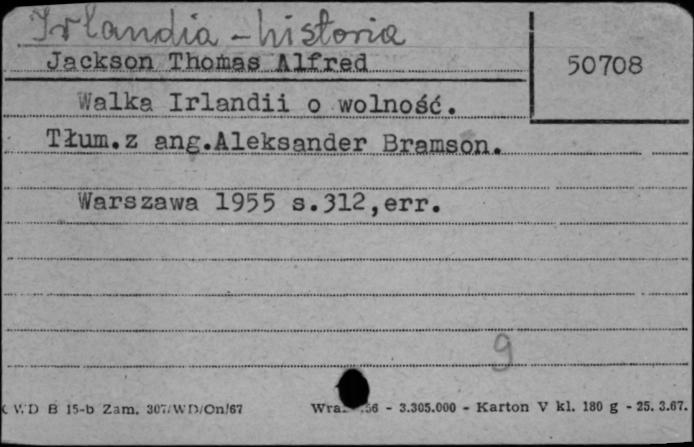 Irlandia - historia
Jackson Thomas Alfred
50708
Walka Irlandii o wolność.
Tłum.z ang.Aleksander Bramson.
Warszawa 1955 s.312,err.
9
WD B 15-b Zam. 307/WD/On/67
56 - 3.305.000 - Karton V kl. 180 g - 25. 3.67.